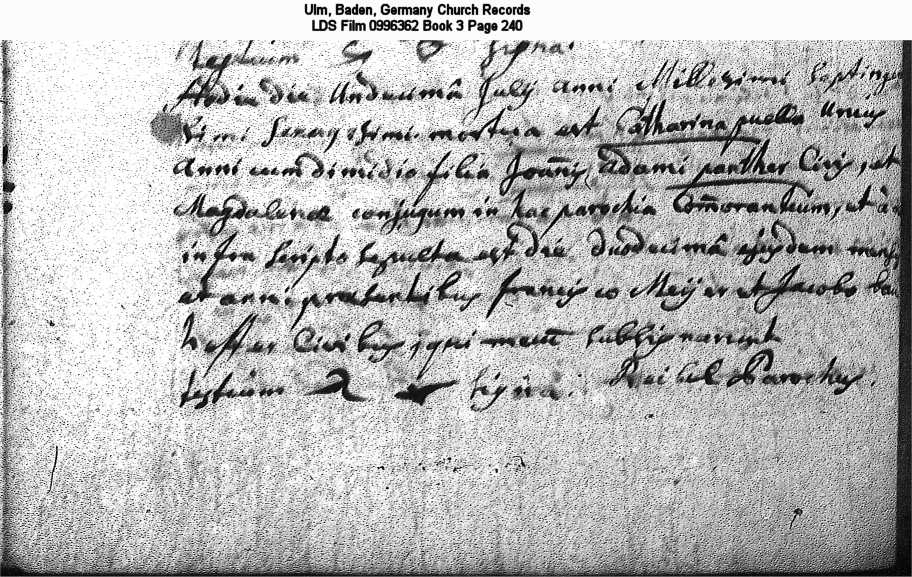 Ulm, Baden, Germany Church Records
LDS Film 0996362 Book 3 Page 240
testium signa
Hodie die Undecimâ Julÿ anni Millesimi Septingen
tesimi Sexagesimi mortua est Catharina puella Unius
Anni cum dimidio filia Joannis Adami panther Civis, et
Magdalenae conjugum in hac parochia Com̄orantium, et à
infra scripto sepulta est die duodecimâ ejusdem mensis
et anni praesentibus francisco Meÿer et Jacobo
Civibus, qui mecū subsignarunt
testium signa. Reibel Parochus.